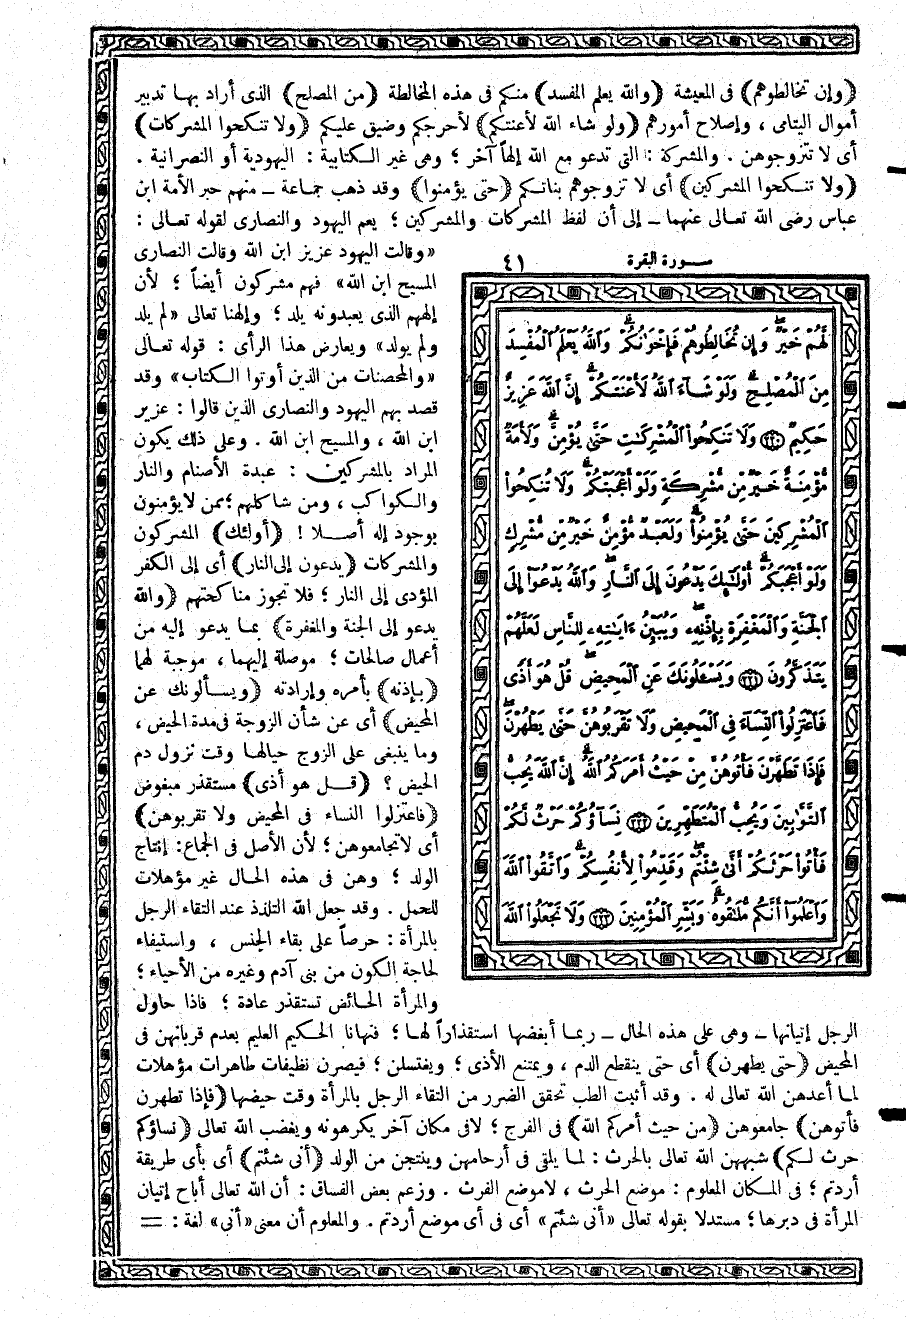 (وإن تخالطوهم) فى المعيشة (والله يعلم المفسد) منكم فى هذه المخالطة (من المصلح) الذى أراد بها تدبير
أموال اليتامى ، وإصلاح أمورهم (ولو شاء الله لأعنتكم) لأحرجكم وضيق عليكم (ولا تنكحوا المشركات)
أى لا تتزوجوهن . والمشركة : التى تدعو مع الله إلهاً آخر ؛ وهى غير الكتابية : اليهودية أو النصرانية .
(ولا تنكحوا المشركين) أى لا تزوجوهم بناتكم (حتى يؤمنوا) وقد ذهب جماعة ــ منهم حبر الأمة ابن
عباس رضى الله تعالى عنهما ــ إلى أن لفظ المشركات والمشركين ؛ يعم اليهود والنصارى لقوله تعالى :
«وقالت اليهود عزير ابن الله وقالت النصارى
المسيح ابن الله» فهم مشركون أيضاً ؛ لأن
إلههم الذى يعبدونه يلد ؛ وإلهنا تعالى «لم يلد
ولم يولد» ويعارض هذا الرأى : قوله تعالى
«والمحصنات من الذين أوتوا الكتاب» وقد
قصد بهم اليهود والنصارى الذين قالوا : عزير
ابن الله ، والمسيح ابن الله . وعلى ذلك يكون
المراد بالمشركين : عبدة الأصنام والنار
والكواكب ، ومن شاكلهم ؛ ممن لا يؤمنون
بوجود إله أصلا ! (أولئك) المشركون
والمشركات (يدعون إلى النار) أى إلى الكفر
المؤدى إلى النار ؛ فلا تجوز مناكحتهم (والله
يدعو إلى الجنة والمغفرة) بما يدعو إليه من
أعمال صالحات ؛ موصلة إليهما ، موجبة لهما
(بإذنه) بأمره وإرادته (ويسألونك عن
المحيض) أى عن شأن الزوجة فى مدة الحيض ،
وما ينبغى على الزوج حيالها وقت نزول دم
الحيض ؟ (قل هو أذى) مستقذر مبغوض
(فاعتزلوا النساء فى المحيض ولا تقربوهن)
أى لا تجامعوهن ؛ لأن الأصل فى الجماع : إنتاج
الولد ؛ وهن فى هذه الحال غير مؤهلات
للحمل . وقد جعل الله التلذذ عند التقاء الرجل
بالمرأة : حرصاً على بقاء الجنس ، واستيفاء
لحاجة الكون من بنى آدم وغيره من الأحياء ؛
والمرأة الحائض تستقذر عادة ؛ فاذا حاول
سورة البقرة ٤١
لَّهُمْ خَيْرٌ وَإِن تُخَالِطُوهُمْ فَإِخْوَانُكُمْ وَاللَّهُ يَعْلَمُ الْمُفْسِدَ
مِنَ الْمُصْلِحِ وَلَوْ شَاءَ اللَّهُ لَأَعْنَتَكُمْ إِنَّ اللَّهَ عَزِيزٌ
حَكِيمٌ ٢٢٠ وَلَا تَنكِحُوا الْمُشْرِكَاتِ حَتَّى يُؤْمِنَّ وَلَأَمَةٌ
مُّؤْمِنَةٌ خَيْرٌ مِّن مُّشْرِكَةٍ وَلَوْ أَعْجَبَتْكُمْ وَلَا تُنكِحُوا
الْمُشْرِكِينَ حَتَّى يُؤْمِنُوا وَلَعَبْدٌ مُّؤْمِنٌ خَيْرٌ مِّن مُّشْرِكٍ
وَلَوْ أَعْجَبَكُمْ أُولَٰئِكَ يَدْعُونَ إِلَى النَّارِ وَاللَّهُ يَدْعُوا إِلَى
الْجَنَّةِ وَالْمَغْفِرَةِ بِإِذْنِهِ وَيُبَيِّنُ ءَايَاتِهِ لِلنَّاسِ لَعَلَّهُمْ
يَتَذَكَّرُونَ ٢٢١ وَيَسْـَٔلُونَكَ عَنِ الْمَحِيضِ قُلْ هُوَ أَذًى
فَاعْتَزِلُوا النِّسَاءَ فِي الْمَحِيضِ وَلَا تَقْرَبُوهُنَّ حَتَّى يَطْهُرْنَ
فَإِذَا تَطَهَّرْنَ فَأْتُوهُنَّ مِنْ حَيْثُ أَمَرَكُمُ اللَّهُ إِنَّ اللَّهَ يُحِبُّ
التَّوَّابِينَ وَيُحِبُّ الْمُتَطَهِّرِينَ ٢٢٢ نِسَاؤُكُمْ حَرْثٌ لَّكُمْ
فَأْتُوا حَرْثَكُمْ أَنَّى شِئْتُمْ وَقَدِّمُوا لِأَنفُسِكُمْ وَاتَّقُوا اللَّهَ
وَاعْلَمُوا أَنَّكُم مُّلَاقُوهُ وَبَشِّرِ الْمُؤْمِنِينَ ٢٢٣ وَلَا تَجْعَلُوا اللَّهَ
الرجل إتيانها ــ وهى على هذه الحال ــ ربما أبغضها استقذاراً لها ؛ فنهانا الحكيم العليم بعدم قربانهن فى
المحيض (حتى يطهرن) أى حتى ينقطع الدم ، ويمتنع الأذى ؛ ويغتسلن ؛ فيصرن نظيفات طاهرات مؤهلات
لما أعدهن الله تعالى له . وقد أثبت الطب تحقق الضرر من التقاء الرجل بالمرأة وقت حيضها (فإذا تطهرن
فأتوهن) جامعوهن (من حيث أمركم الله) فى الفرج ؛ لا فى مكان آخر يكرهونه ويغضب الله تعالى (نساؤكم
حرث لكم) شبههن الله تعالى بالحرث : لما يلقى فى أرحامهن وينتجن من الولد (أنى شئتم) أى بأى طريقة
أردتم ؛ فى المكان المعلوم : موضع الحرث ، لا موضع الفرث . وزعم بعض الفساق : أن الله تعالى أباح إتيان
المرأة فى دبرها ؛ مستدلا بقوله تعالى «أنى شئتم» أى فى أى موضع أردتم . والمعلوم أن معنى «أنى» لغة : =